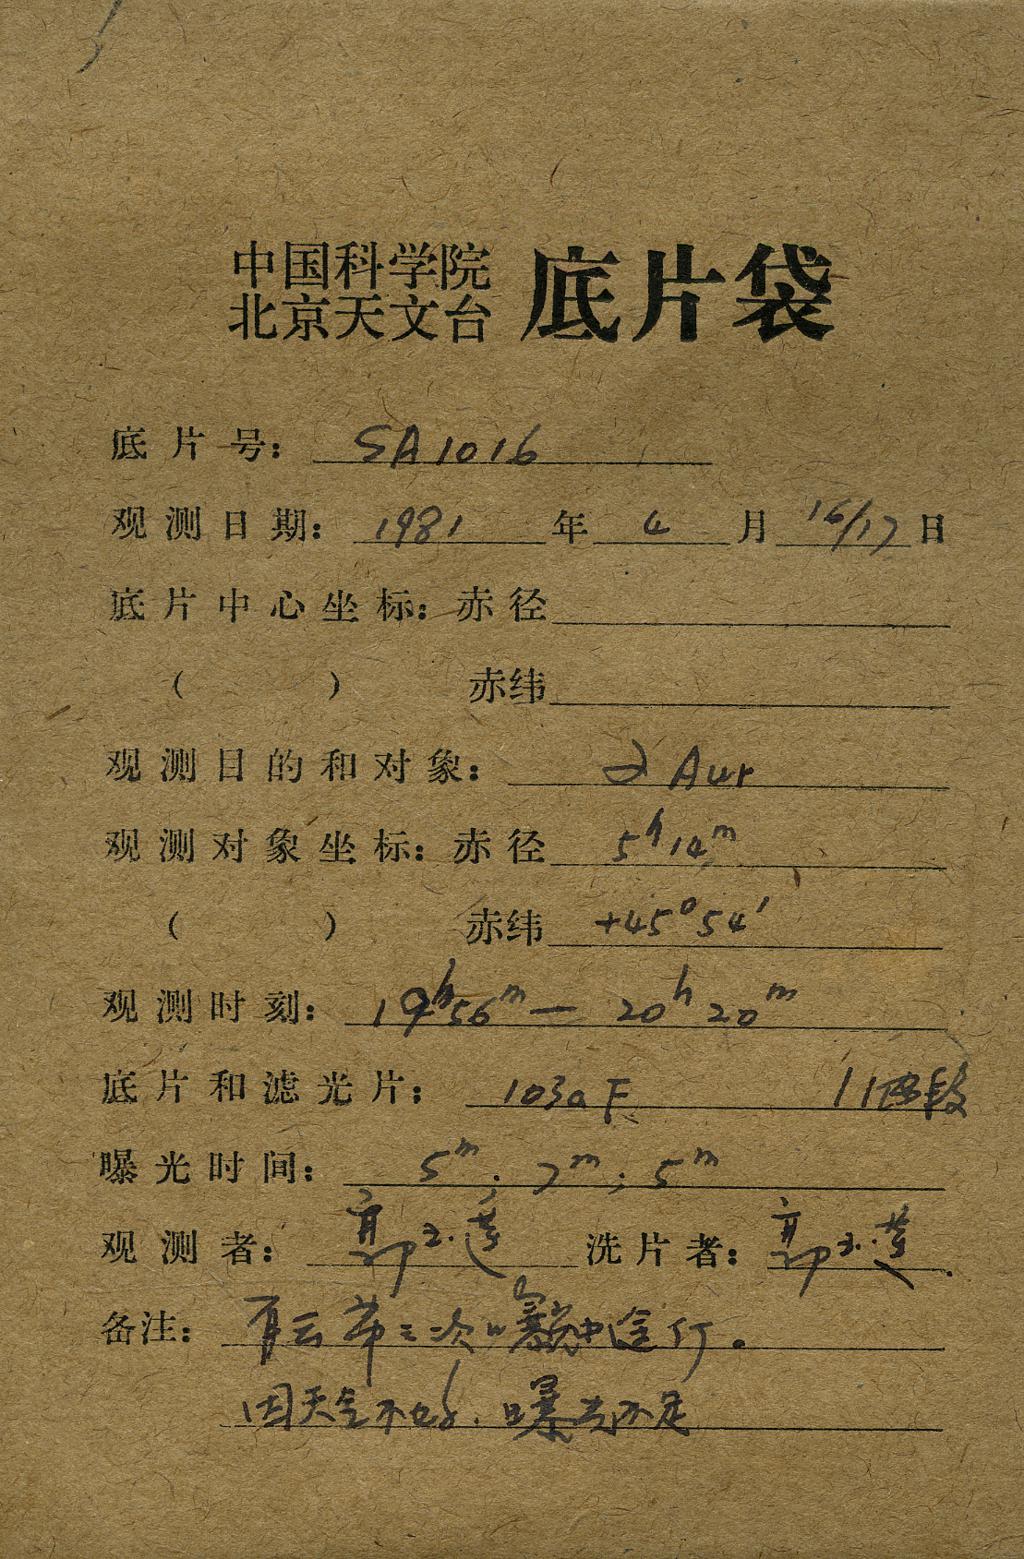 中国科学院
北京天文台 底片袋
底片号： SA1016
观测日期： 1981 年 4 月 16/17 日
底片中心坐标：赤径
（ ） 赤纬
观测目的和对象： α Aur
观测对象坐标：赤径 5h14m
（ ） 赤纬 +45°54′
观测时刻： 19h56m — 20h20m
底片和滤光片： 103aF 11 段
曝光时间： 5m; 7m; 5m
观测者： 郭玉莲 洗片者： 郭玉莲
备注： 有云 第三次曝光中途停。
因天气不好，曝光不足